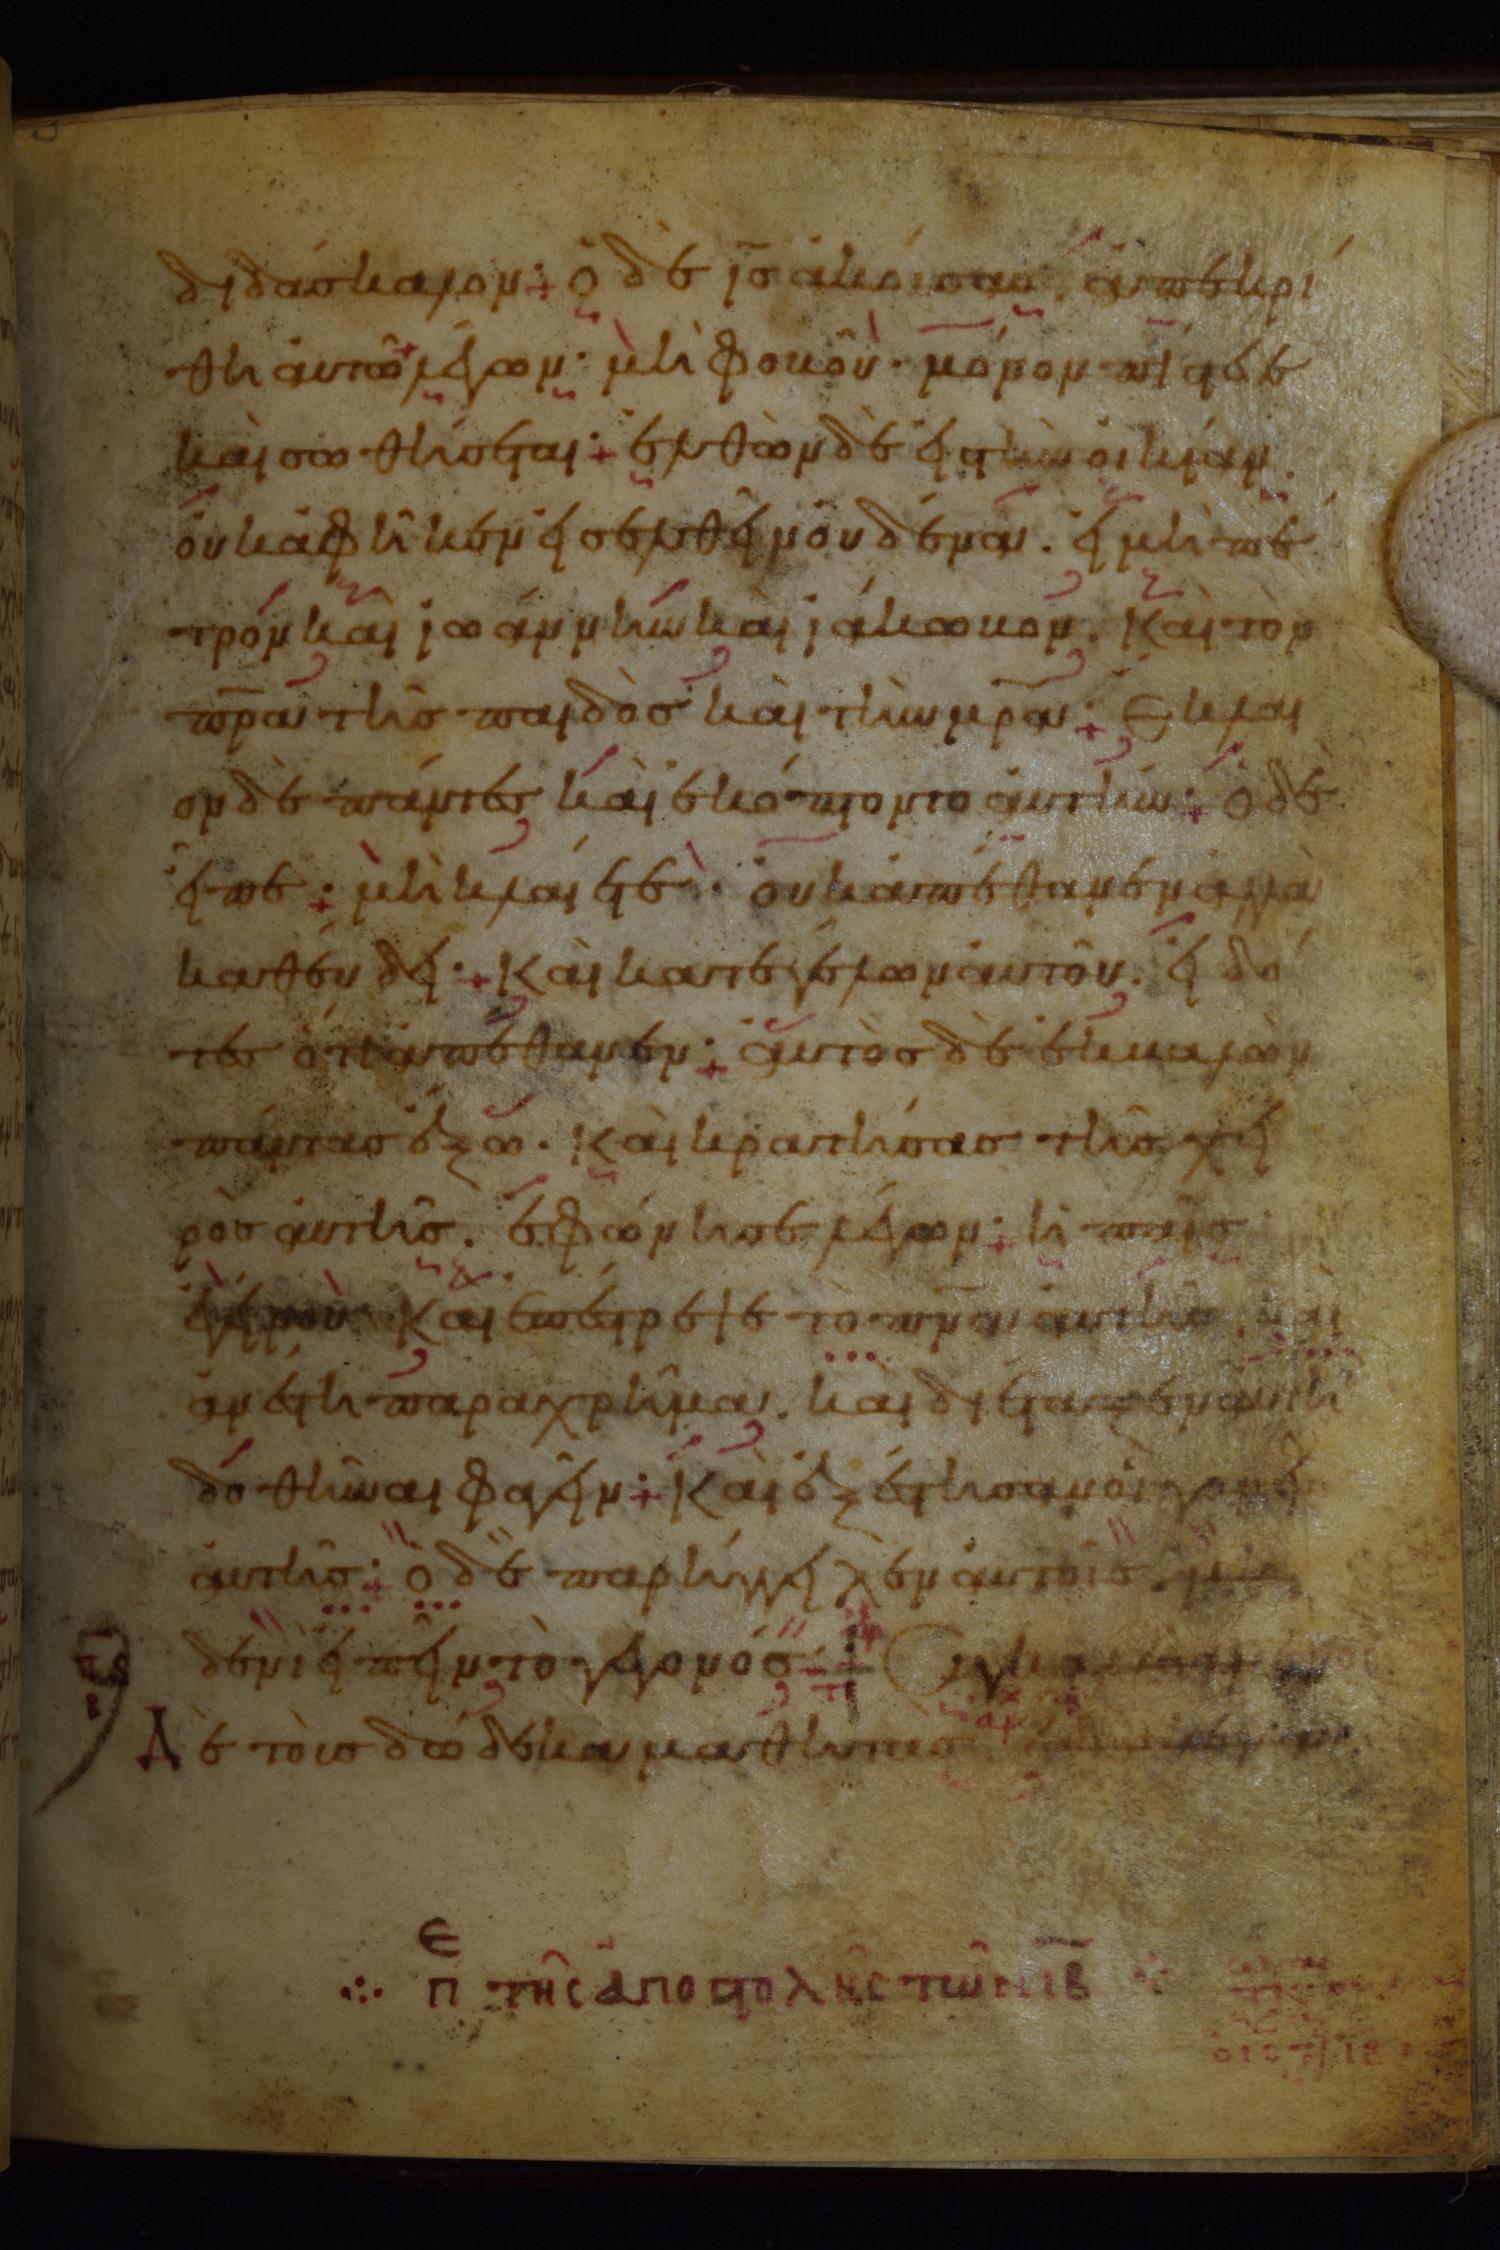 διδάσκαλον· ὁ δὲ ἰς ἀκούσας, ἀπεκρί
θη αὐτῶ λέγων· μὴ φοβοῦ· μόνον πίστευε
καὶ σωθήσεται· ἐλθὼν δὲ εἰς τὴν οἰκίαν.
οὐκ ἀφῆκεν εἰσελθεῖν οὐδένα. εἰ μὴ πέ
τρον καὶ ἰωάννην καὶ ἰάκωβον. καὶ τὸν
πρα τῆς παιδὸς καὶ τὴν μρα· ἔκλαι
ον δὲ πάντες καὶ ἐκόπτοντο αὐτήν· ὁ δὲ
εἶπε· μὴ κλαίετε· οὐκ ἀπέθανεν ἀλλὰ
καθεύδει· καὶ κατεγέλων αὐτοῦ. εἰδό
τες ὅτι ἀπέθανεν· αὐτὸς δὲ ἐκβαλὼν
πάντας ἔξω. καὶ κρατήσας τῆς χει
ρὸς αὐτῆς. ἐφώνησε λέγων· ἡ παῖς
ἐγείρου· καὶ ἐπέστρεψε τὸ πνα αὐτῆς. καὶ
ἀνέστη παραχρῆμα. καὶ διέταξεν αὐτῆ
δοθῆναι φαγεῖν· καὶ ἐξέστησαν οἱ γονεῖς
αὐτῆς· ὁ δὲ παρήγγειλεν αὐτοῖς. μη
δενὶ εἰπεῖν τὸ γεγονός· Συγκαλεσάμενος
δὲ τοὺς δώδεκα μαθητὰς
ΠΕ τῆς ἀποστολῆς τῶν ΙΒ